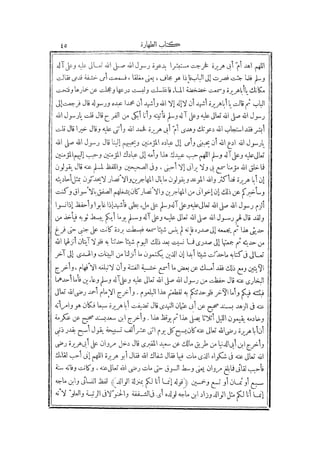 كتاب الطهارة ٤٥
اللهم اهد أم أبي هريرة فخرجت مستبشرا بدعوة رسول الله صلى الله تعالى عليه وعلى آله
وسلم فلما جئت فصرت إلى الباب فإذا هو مجاف ، يعني مغلقا ، فسمعت أمي خشفة قدمي فقالت
مكانك يا أبا هريرة وسمعت خضخضة الماء، فاغتسلت ولبست درعها وعجلت عن خمارها وفتحت
الباب ثم قالت يا أبا هريرة أشهد أن لا إله إلا الله وأشهد أن محمدا عبده ورسوله قال فرجعت إلى
رسول الله صلى الله تعالى عليه وعلى آله وسلم فأتيته وأنا أبكي من الفرح قال قلت يا رسول الله
أبشر فقد استجاب الله دعوتك وهدى أم أبي هريرة فحمد الله وأثنى عليه وقال خيرا قال قلت
يا رسول الله ادع الله أن يحببني وأمي إلى عباده المؤمنين ويحببهم إلينا قال رسول الله صلى الله
تعالى عليه وعلى آله وسلم اللهم حبب عبيدك هذا وأمه إلى عبادك المؤمنين وحبب إليهم المؤمنين
فما خلق الله مؤمنا سمع بي ولا يراني إلا أحبني . وفي الصحيحين واللفظ لمسلم عنه قال يقولون
إن أبا هريرة قد أكثر والله الموعد ويقولون ما بال المهاجرين والأنصار لا يتحدثون بمثل أحاديثه
وسأخبركم عن ذلك إن إخواني من المهاجرين والأنصار كان يشغلهم الصفق بالأسواق وكنت
ألزم رسول الله صلى الله تعالى عليه وعلى آله وسلم على ملء بطني فأشهد إذا غابوا وأحفظ إذا نسوا
ولقد قال لهم رسول الله صلى الله تعالى عليه وعلى آله وسلم يوما أيكم يبسط ثوبه فيأخذ من
حديثي هذا ثم يجمعه إلى صدره فإنه لم ينس شيئا سمعه فبسطت بردة كانت علي حتى فرغ
من حديثه ثم جمعتها إلى صدري فما نسيت بعد ذلك اليوم شيئا حدثنا به فلولا آيتان أنزلهما الله
تعالى في كتابه ما حدثت شيئا أبدا إن الذين يكتمون ما أنزلنا من البينات والهدى إلى آخر
الآيتين ومع ذلك فقد أمسك عن بعض ما أسمع خشية الفتنة وأن لا تبلغه الأفهام . وأخرج
البخاري عنه قال حفظت من رسول الله صلى الله تعالى عليه وعلى آله وسلم وعاءين فأما أحدهما
فبثثته فيكم وأما الآخر فلو حدثتكم به لقطعتم هذا البلعوم . وأخرج الإمام أحمد رضي الله تعالى
عنه في الزهد بسند صحيح عن أبي عثمان النهدي قال تضيفت أبا هريرة سبعا فكان هو وامرأته
وخادمه يقتسمون الليل أثلاثا يصلي هذا ثم يوقظ هذا . وأخرج ابن سعد بسند صحيح عن عكرمة
أن أبا هريرة رضي الله تعالى عنه كان يسبح كل يوم اثني عشر ألف تسبيحة يقول أسبح بقدر ذنبي
وأخرج ابن أبي الدنيا من طريق مالك عن سعيد المقبري قال دخل مروان على أبي هريرة رضي
الله تعالى عنه في شكواه الذي مات فيها فقال شفاك الله فقال أبو هريرة اللهم إني أحب لقاءك
فأحبب لقائي فما بلغ مروان يعني وسط السوق حتى مات رضي الله تعالى عنه . وكانت وفاته سنة
سبع أو ثمان أو تسع وخمسين (قوله إنما أنا لكم بمنزلة الوالد) لفظ النسائي وابن ماجه
إنما أنا لكم مثل الوالد وزاد ابن ماجه لولده أي في الشفقة والحنو لا في الرتبة والعلو لأنه